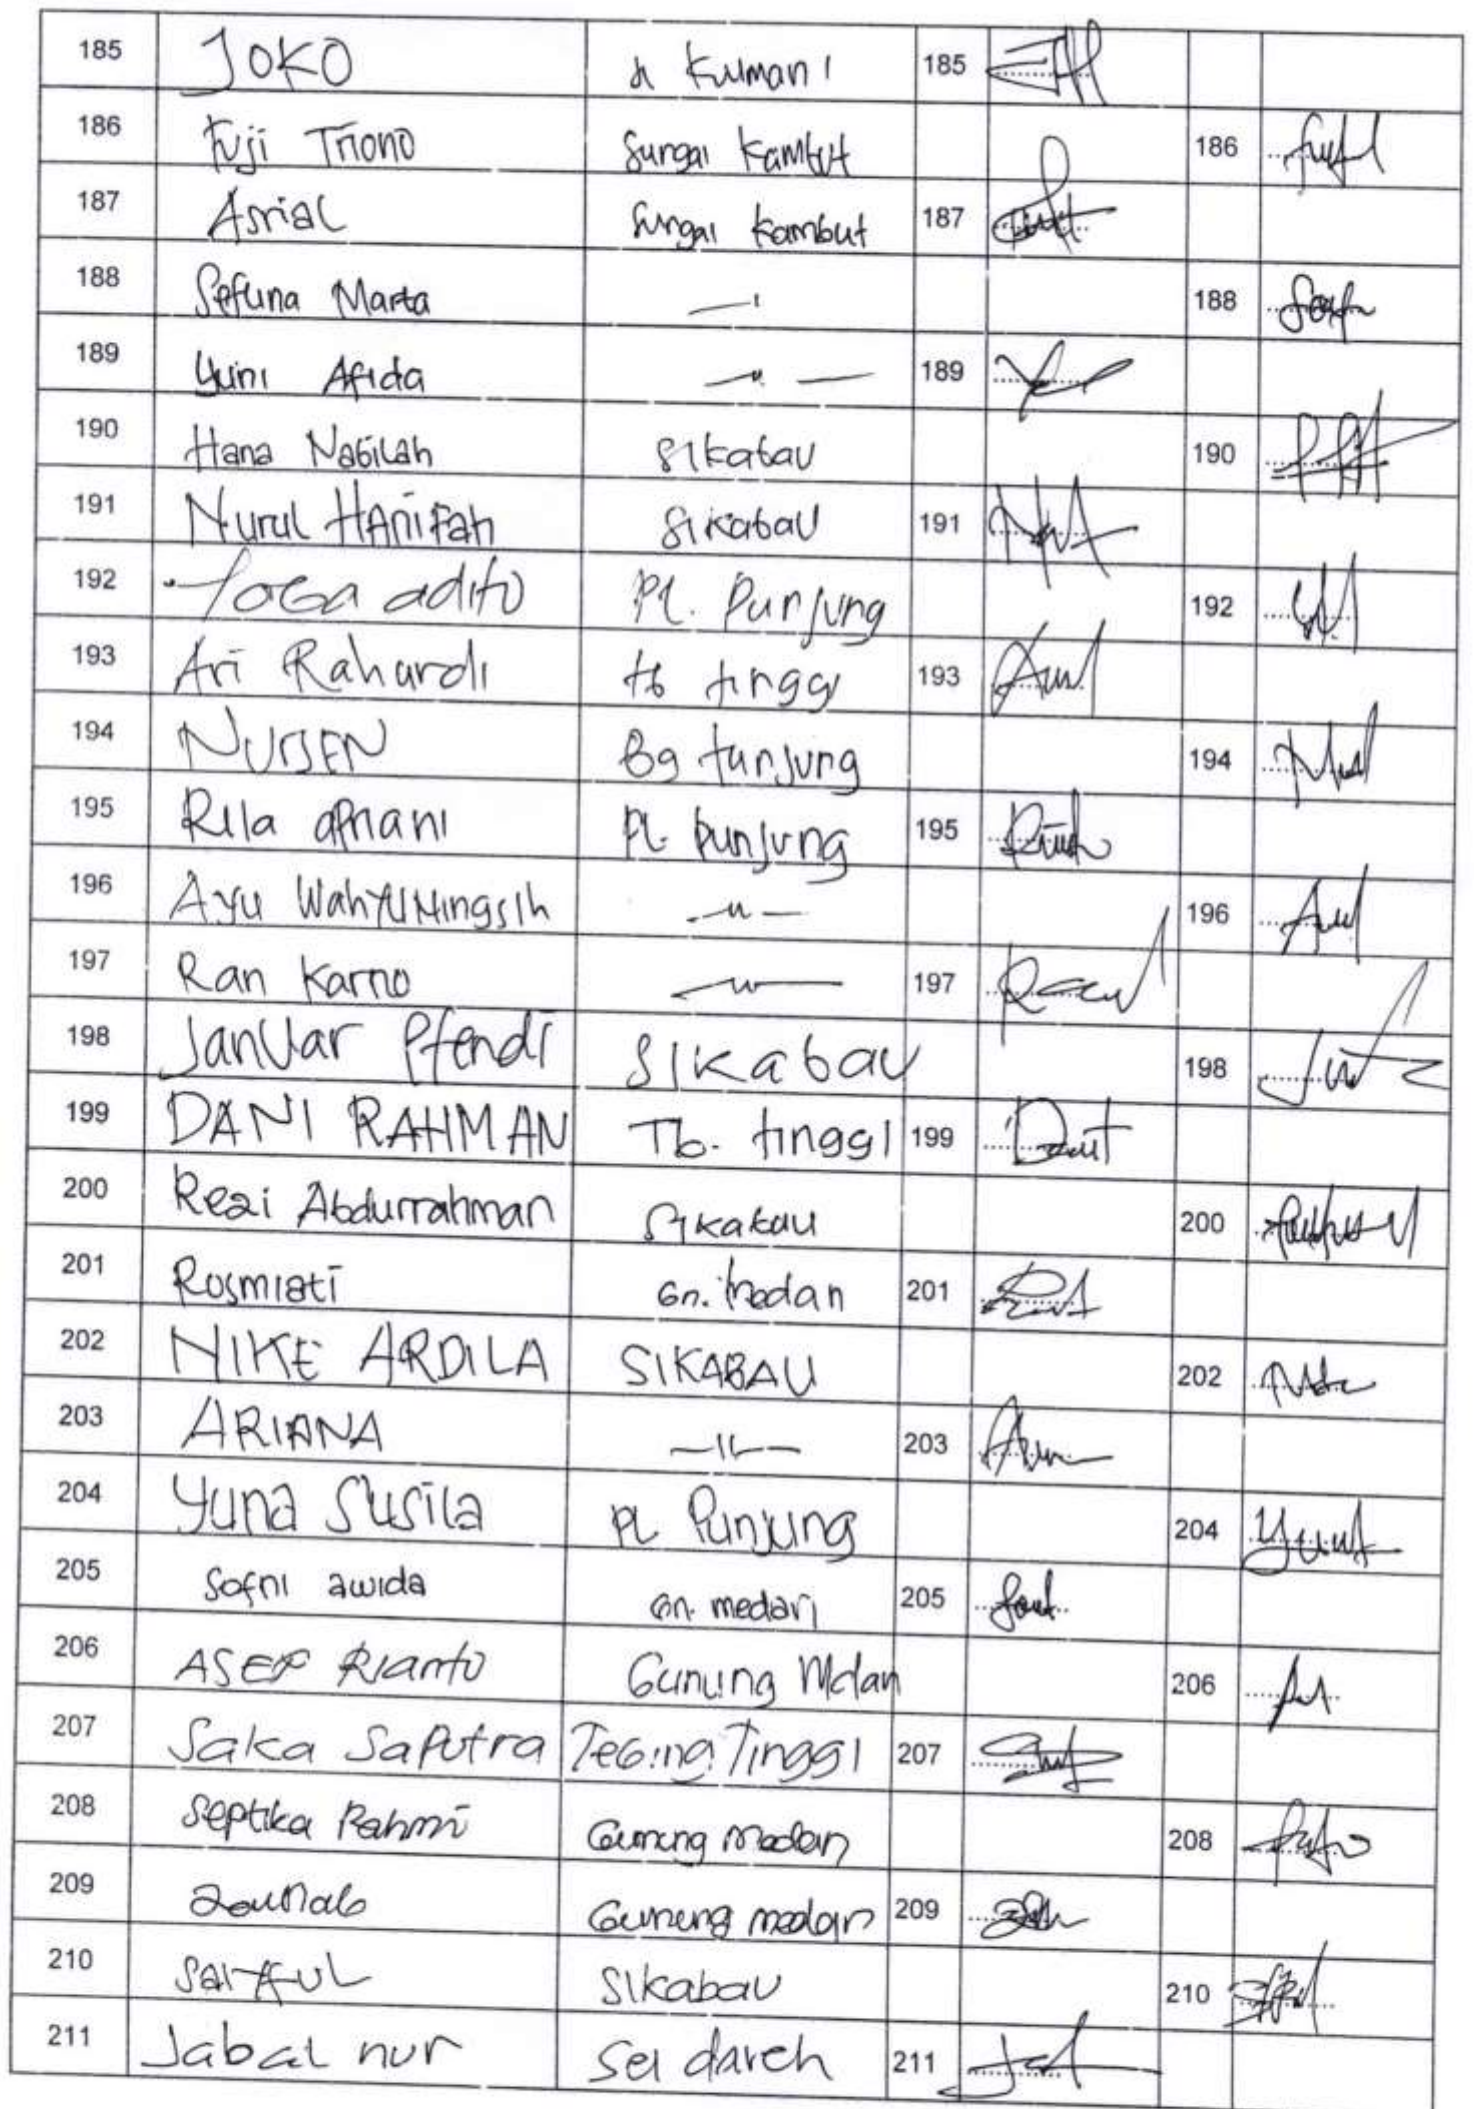 185 JOKO Kumani 185
186 Fuji Triono Sungai Kambut 186
187 Asrial Sungai Kambut 187
188 Sefuna Marta — " 188
189 Yuni Afida — " — 189
190 Hana Nabilah Sikabau 190
191 Nurul HAnifah Sikabau 191
192 Yoga adito PL. Punjung 192
193 Ari Rahardi tb tinggi 193
194 NURSEN Bg tanjung 194
195 Rila apriani PL. punjung 195
196 Ayu WahyuNingsih - " - 196
197 Ran Karno — " — 197
198 Januar Efendi Sikabau 198
199 DANI RAHMAN Tb. tinggi 199
200 Rezi Abdurrahman Sikabau 200
201 Rosmiati Gn. Medan 201
202 NIKE ARDILA SIKABAU 202
203 ARIANA — " — 203
204 Yuna Susila PL Punjung 204
205 Sofni awida Gn. medan 205
206 ASEP Rianto Gunung Mdan 206
207 Saka Saputra Tebing Tinggi 207
208 Septika Rahmi Gunung Medan 208
209 Zaunab Gunung medan 209
210 Saiful Sikabau 210
211 Jabal nur Sei dareh 211